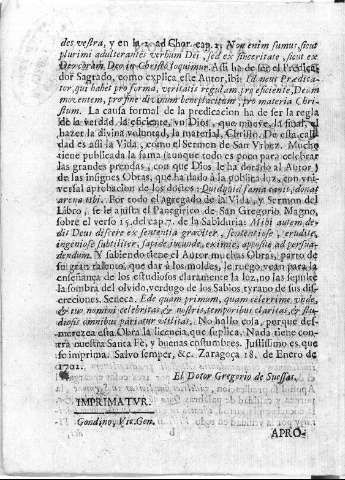 des vestra, y en la 2. ad Chor. cap. 2. Non enim sumus, sicut
plurimi adulterantes verbum Dei, sed ex sinceritate, sicut ex
Deo coram Deo in Christo loquimur. Assi ha de ser el Predica-
dor Sagrado, como explica este Autor, ibi: Id neus Prædica-
tor, qui habet pro forma, veritatis regulam, pro eficiente, Deum
moventem, pro fine divinum beneplacitum, pro materia Chri-
stum. La causa formal de la predicacion ha de ser la regla
de la verdad, la eficiente, vn Dios, que mueve, la final, el
hazer la divina voluntad, la material, Christo. De esta cali-
dad es assi la Vida, como el Sermon de San Vrbez. Mucho
tiene publicada la fama (aunque todo es poco para celebrar
las grandes prendas, con que Dios le ha dotado al Autor)
de las insignes Obras, que ha dado à la publica luz, con vni-
versal aprobacion de los doctos: Quidquid fama canit, donat
arena tibi. Por todo el agregado de la Vida, y Sermon del
Libro, se le ajusta el Panegirico de San Gregorio Magno,
sobre el verso 15. del cap. 7. de la Sabiduria: Mihi autem de-
dit Deus dicere ex sententia graviter, sententiose, erudite,
ingeniose subtiliter, sapide jucunde, eximie, apposite ad persua-
dendum. Y sabiendo tiene el Autor muchas Obras, parto de
su gran talento, que dar à los moldes, le ruego vean para la
enseñança de los estudiosos claramente la luz, no las sepulte
la sombra del olvido, verdugo de los Sabios, tyrano de sus dis-
creciones. Seneca. Ede quam primum, quam celerrime vide,
& tuo nomini celebritas, & nostris temporibus claritas, & stu-
diosis omnibus pariatur vtilitas. No hallo cosa, porque des-
merezca esta Obra la licencia, que suplica. Nada tiene con-
tra nuestra Santa Fè, y buenas costumbres. Justissimo es que
se imprima. Salvo semper, &c. Zaragoça 18. de Enero de
1701.
El Dotor Gregorio de Suessas.
IMPRIMATVR.
Gondino, Vic. Gen.
APRO-